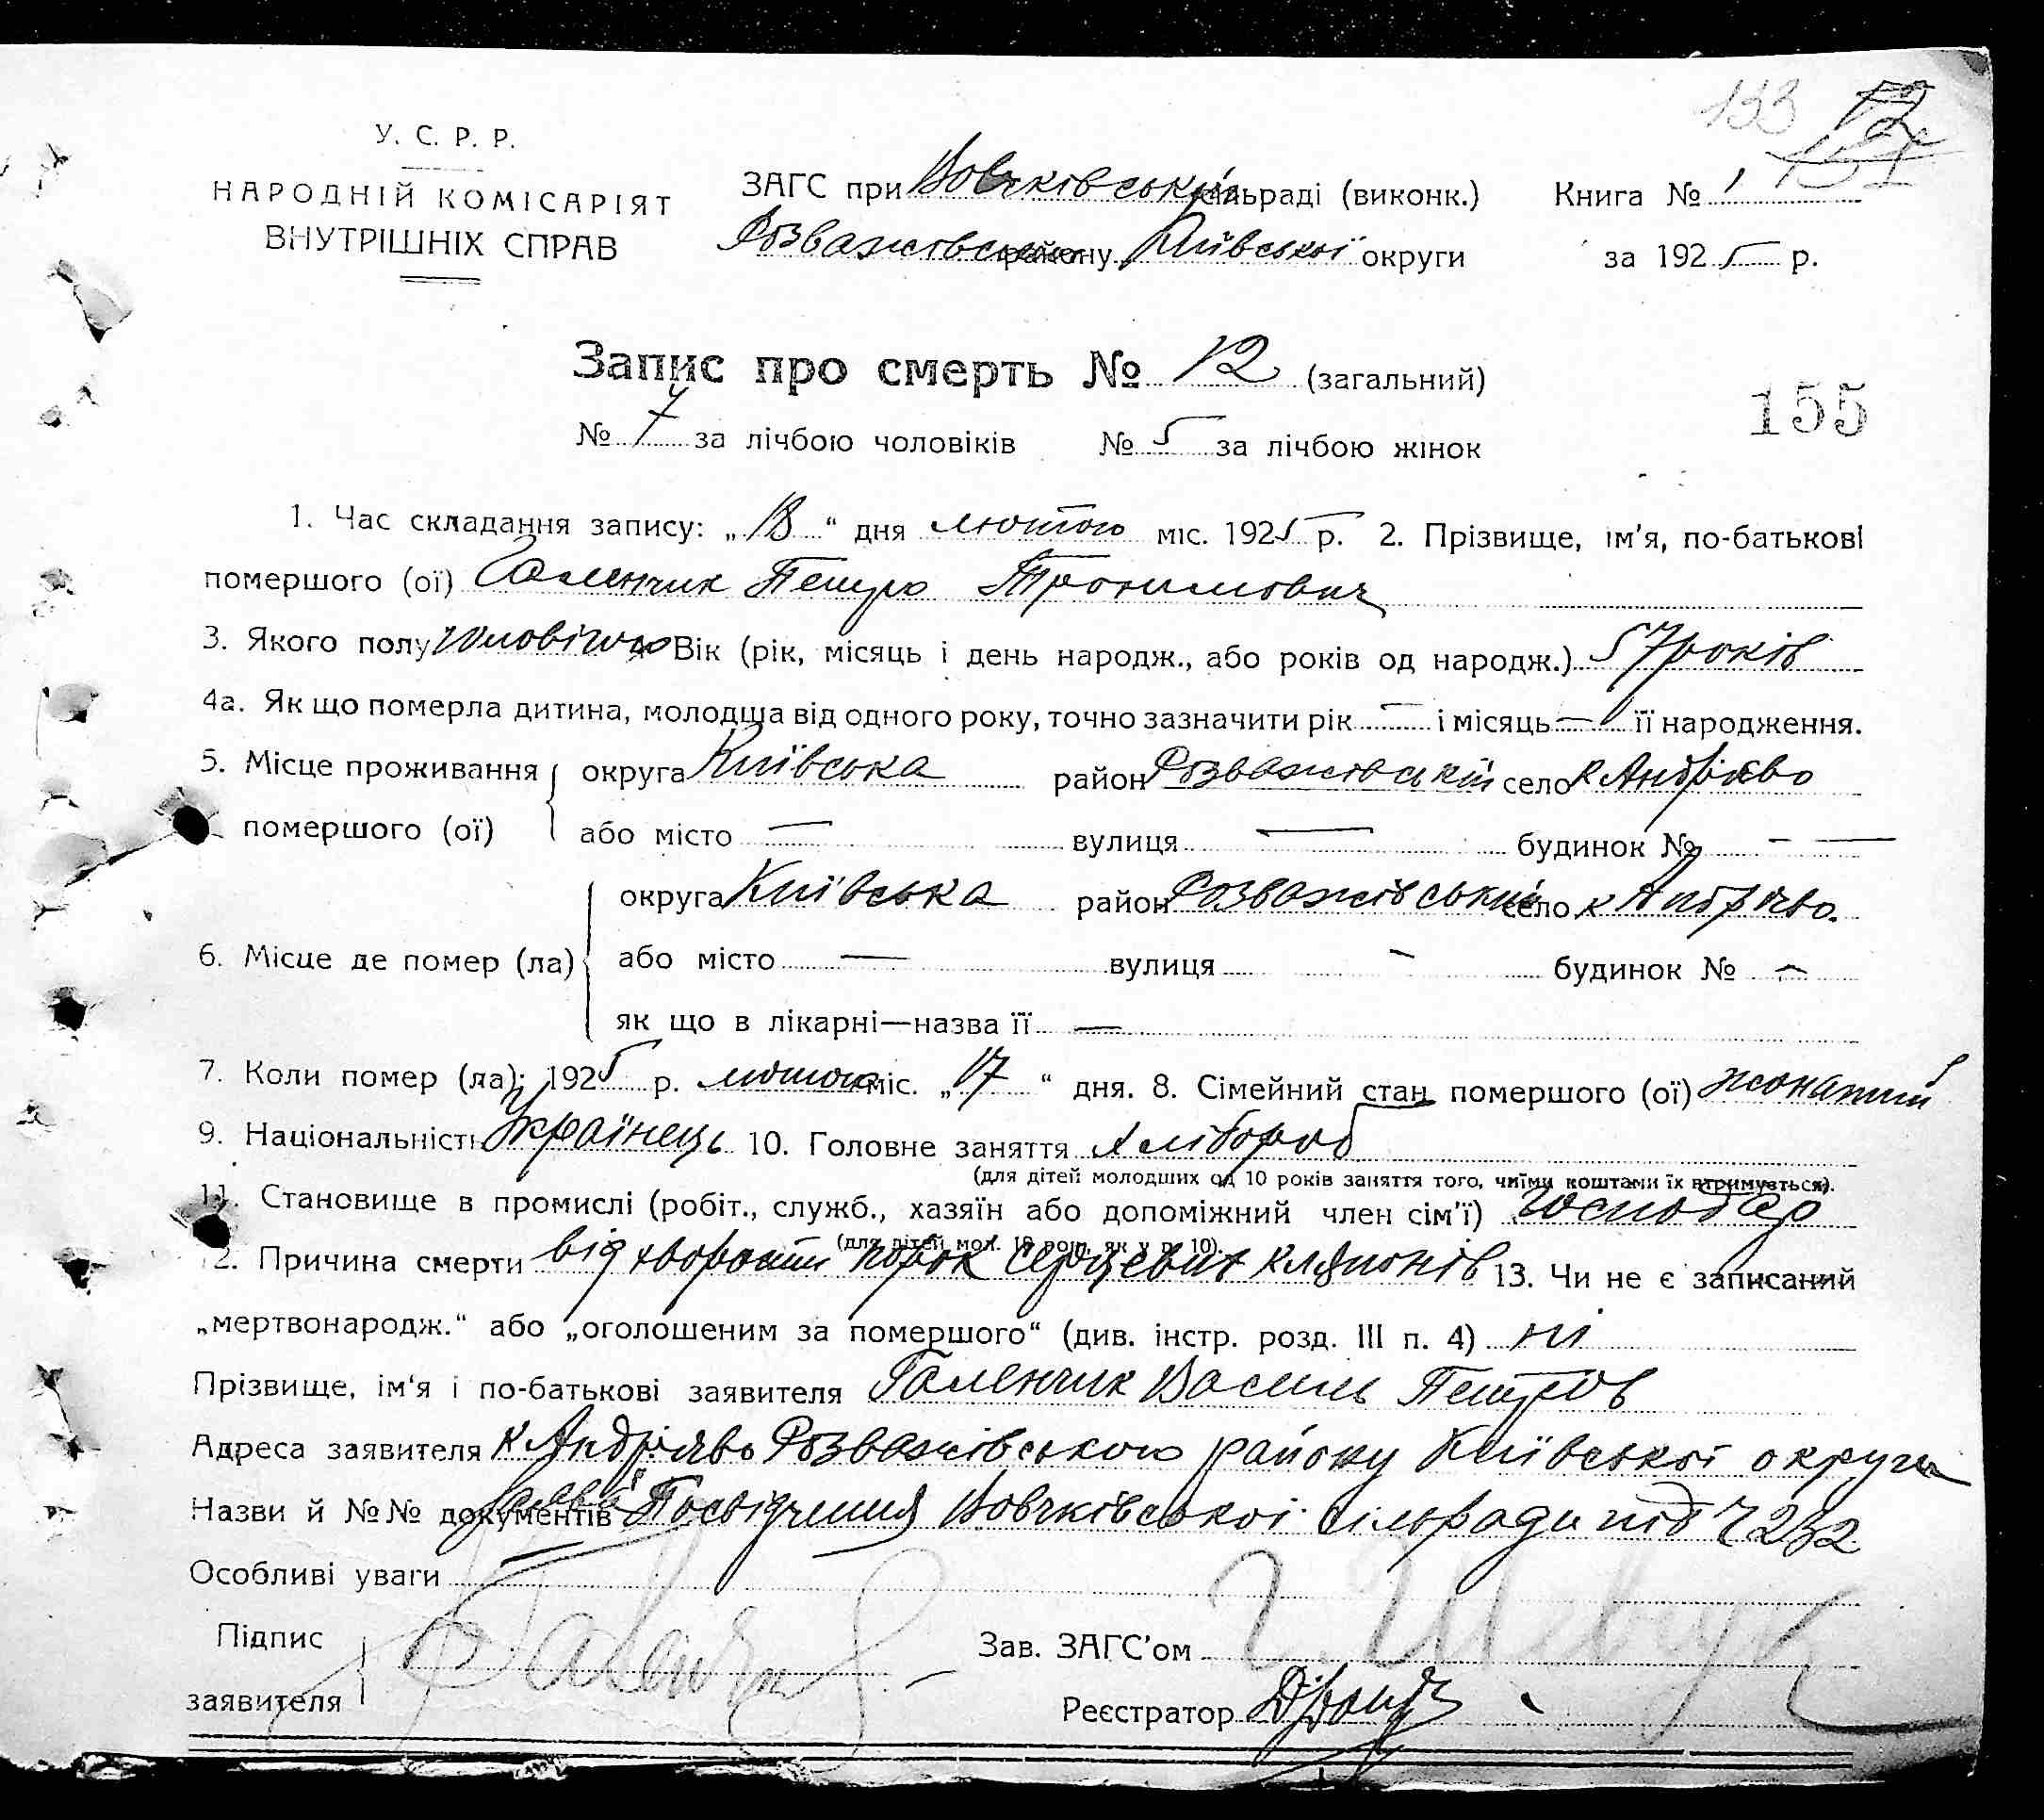 133 12
151
У. С. Р. Р.
НАРОДНІЙ КОМІСАРІЯТ
ВНУТРІШНІХ СПРАВ
ЗАГС при Вовчківській сільраді (виконк.) Книга № 1
Розважівськ району Київської округи за 1925 р.
Запис про смерть № 12 (загальний)
№ 7 за лічбою чоловіків № 5 за лічбою жінок
155
1. Час складання запису: „18“ дня лютого міс. 1925 р. 2. Прізвище, ім'я, по-батькові
помершого (ої) Галенчик Петро Трохимович
3. Якого полу чоловічого Вік (рік, місяць і день народж., або років од народж.) 57 років
4а. Як що померла дитина, молодша від одного року, точно зазначити рік — і місяць — її народження.
5. Місце проживання помершого (ої) округа Київська район Розважівській село к Андрієво
або місто — вулиця — будинок № — —
6. Місце де помер (ла) округа Київська район Розважівський село к Андрієво.
або місто — вулиця — будинок № —
як що в лікарні—назва її —
7. Коли помер (ла): 1925 р. лютого міс. „17“ дня. 8. Сімейний стан помершого (ої) жонатий
9. Національність Українець 10. Головне заняття хлібороб
(для дітей молодших од 10 років заняття того, чиїми коштами їх втримується).
11. Становище в промислі (робіт., служб., хазяїн або допоміжний член сім'ї) господар
(для дітей мол. 10 рок. як у п. 10).
12. Причина смерти від хворости порок серцевих клапонів 13. Чи не є записаний
„мертвонародж.“ або „оголошеним за помершого“ (див. інстр. розд. III п. 4) ні
Прізвище, ім'я і по-батькові заявителя Галенчик Василь Петров
Адреса заявителя к Андріяво Розважівського району Київської округи
Назви й №№ документів Посвідчення Вовчківської сільради під Ч 232
Особливі уваги
Підпис заявителя Галенчик Зав. ЗАГС'ом Г. Шевчук
Реєстратор